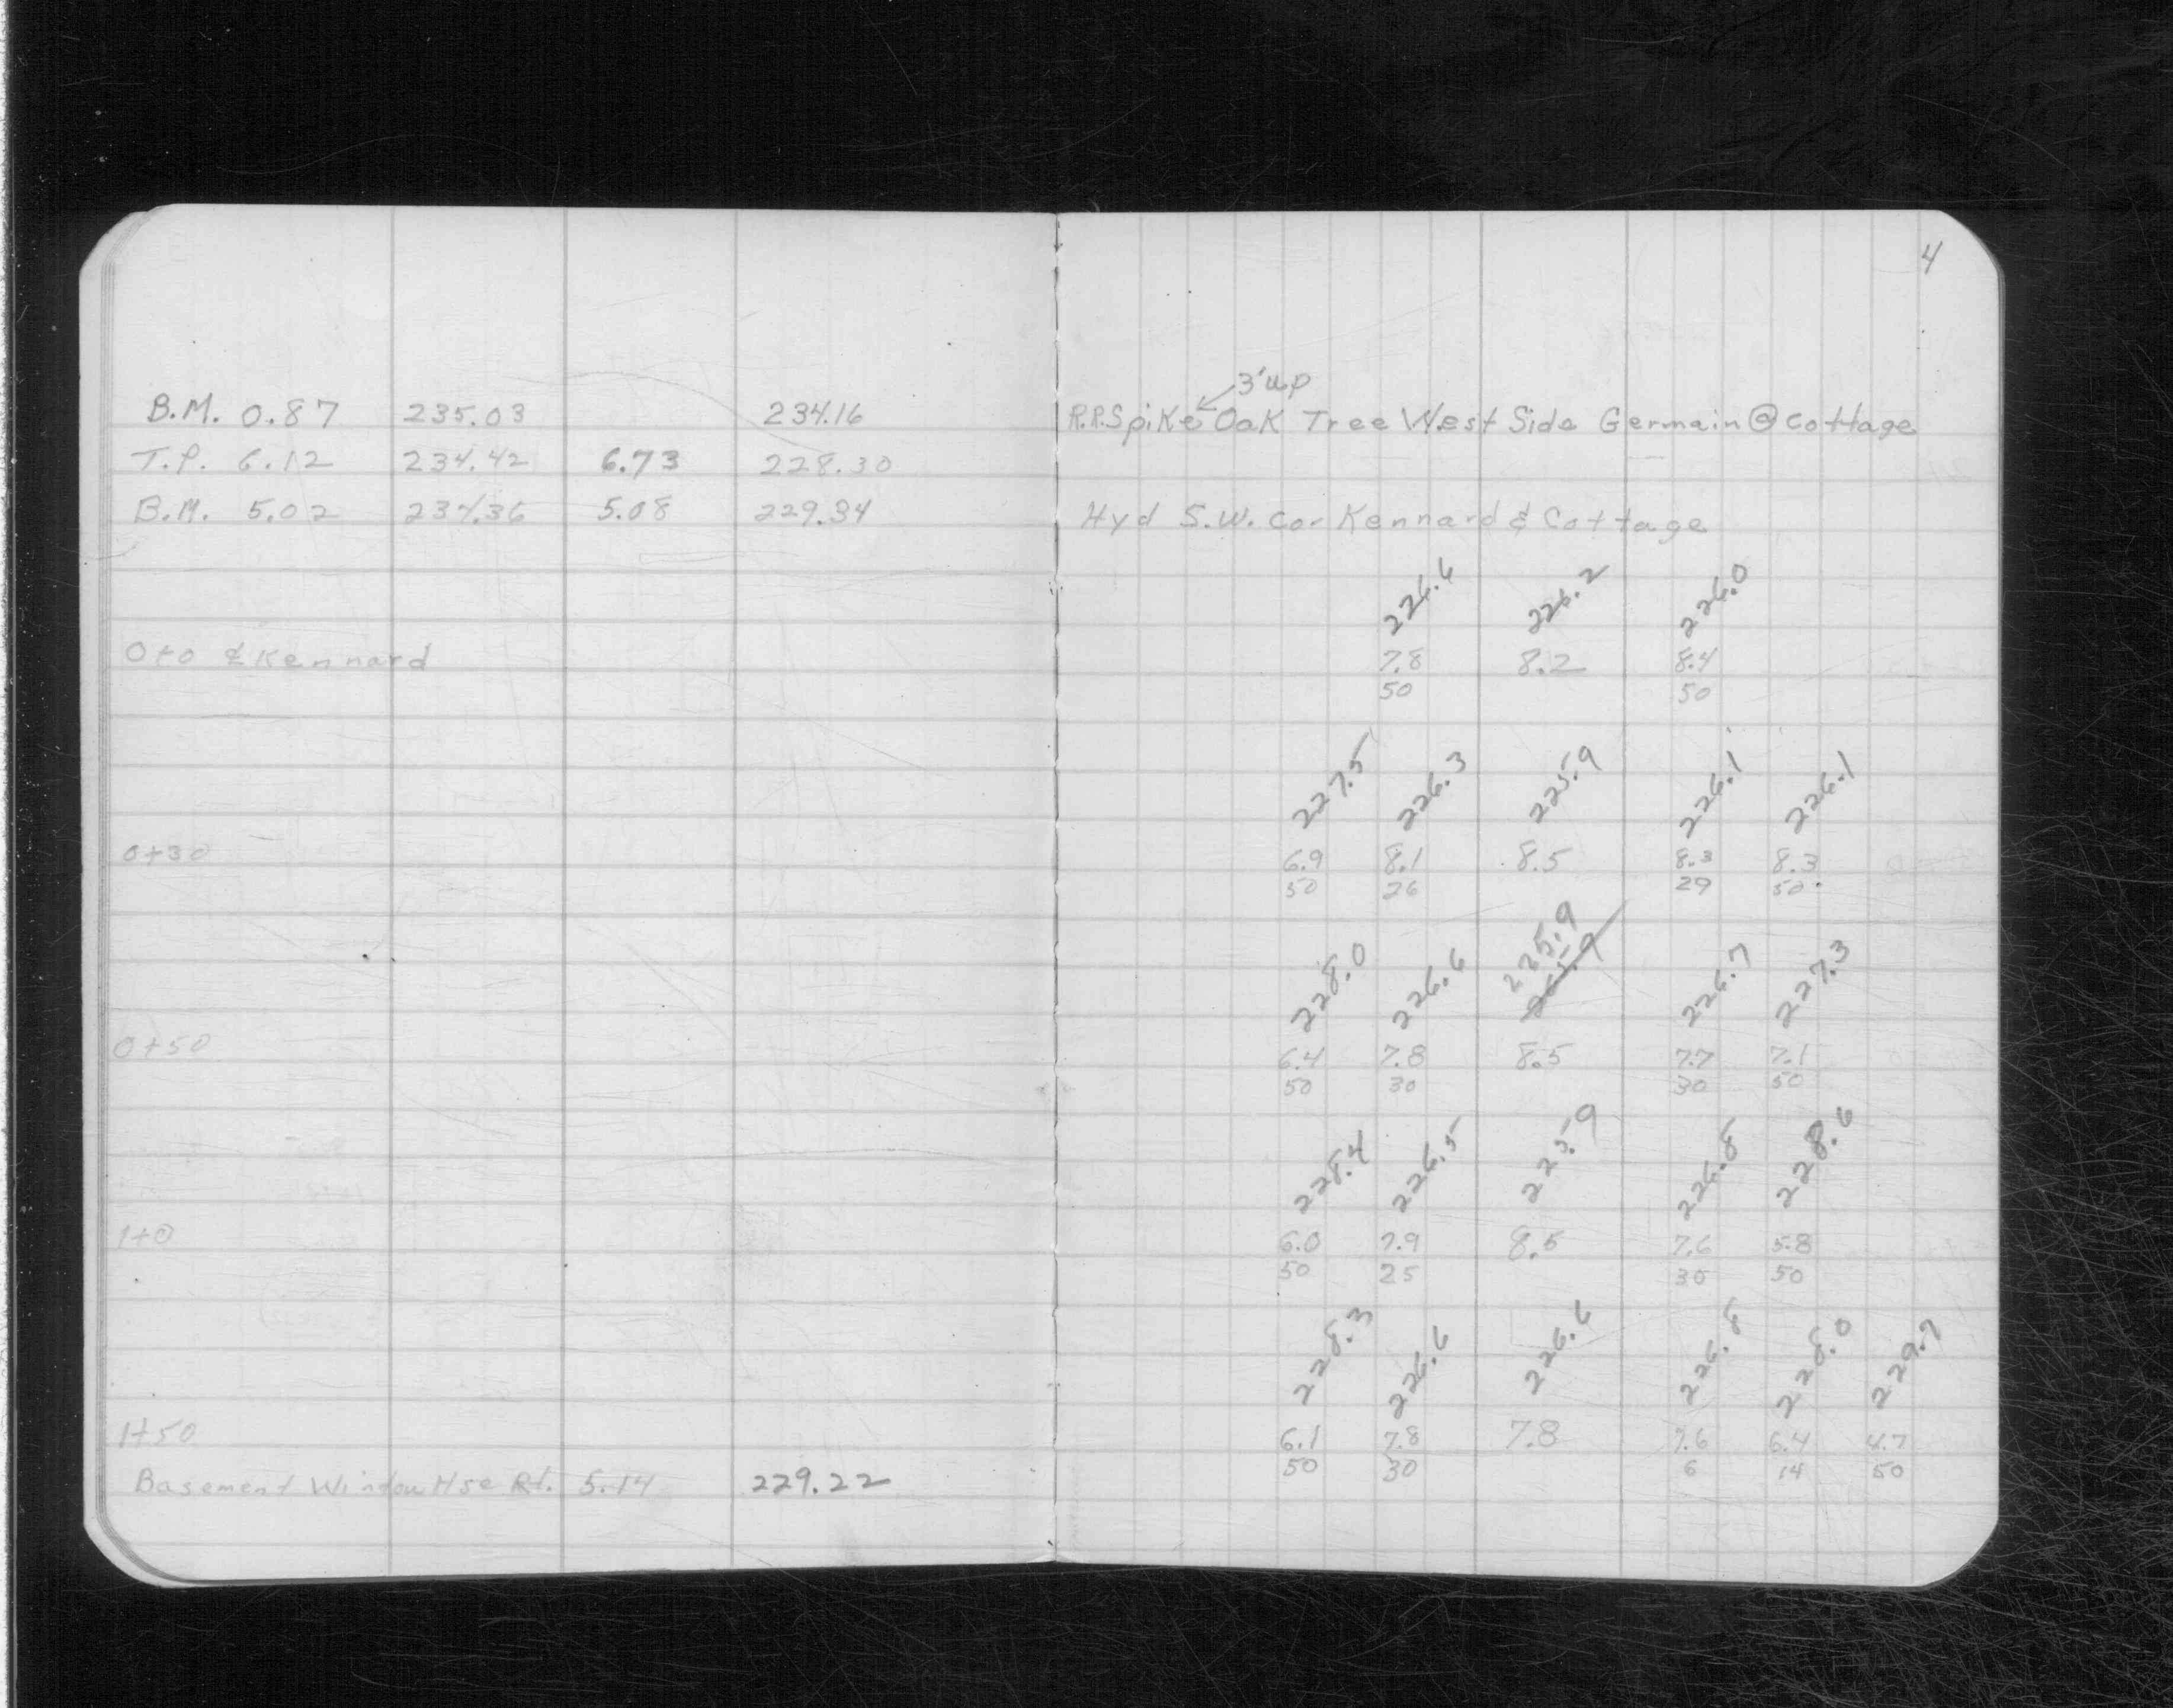 4
3' up
B.M. 0.87 235.03 234.16 R.R.Spike Oak Tree West Side Germain @ Cottage
T.P. 6.12 234.42 6.73 228.30
B.M. 5.02 234.36 5.08 229.34 Hyd S.W. Cor Kennard & Cottage
226.6 226.2 226.0
0+0 ℄ Kennard 7.8 8.2 8.4
50 50
227.5 226.3 225.9 226.1 226.1
0+30 6.9 8.1 8.5 8.3 8.3
50 26 29 50
228.0 226.6 225.9 226.7 227.3
0+50 6.4 7.8 8.5 7.7 7.1
50 30 30 50
228.4 226.5 225.9 226.8 228.6
1+0 6.0 7.9 8.5 7.6 5.8
50 25 30 50
228.3 226.6 226.6 226.8 228.0 229.7
1+50 6.1 7.8 7.8 7.6 6.4 4.7
50 30 6 14 50
Basement Window Hse Rt. 5.14 229.22